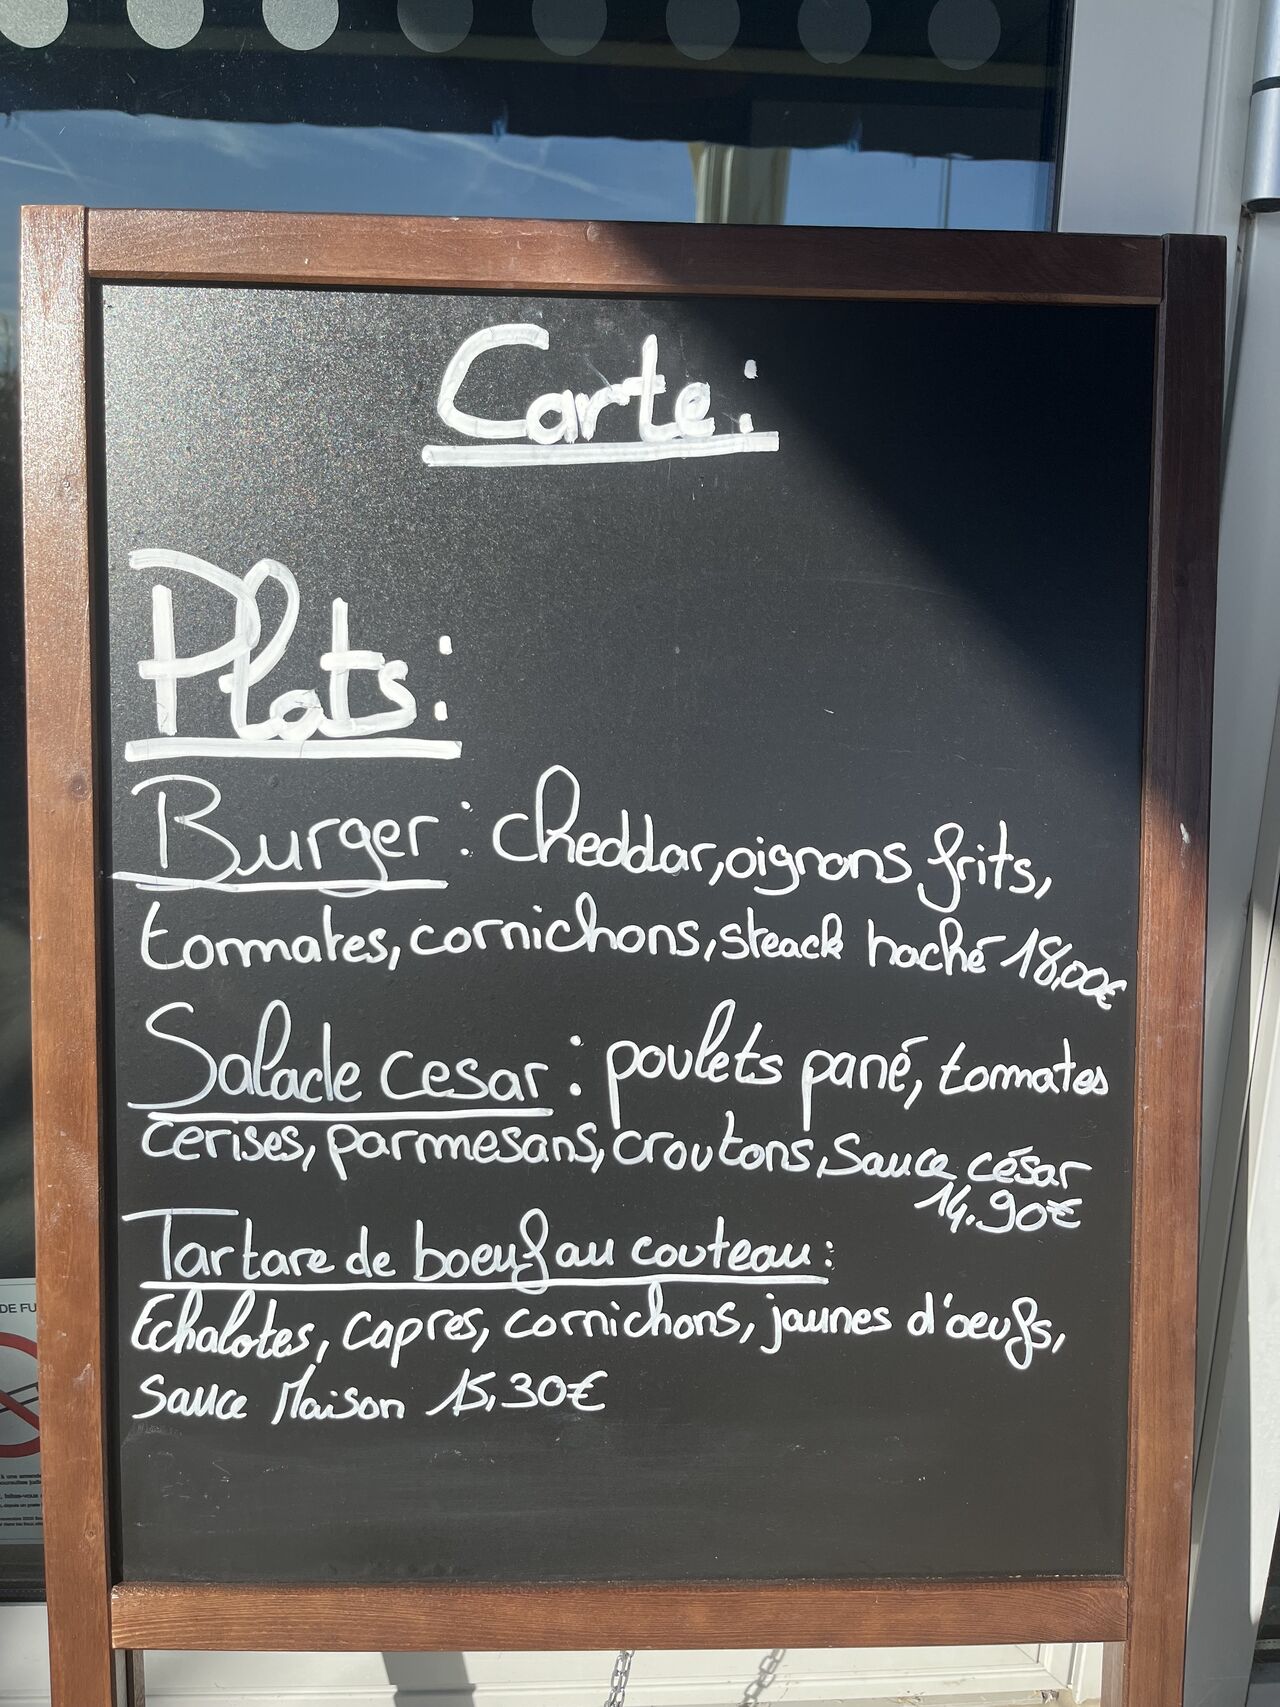 Carte :
Plats :
Burger : cheddar, oignons frits,
tommates, cornichons, steack haché 18,00€
Salade cesar : poulets pané, tommates
cerises, parmesans, croutons, Sauce césar
14.90€
Tartare de boeuf au couteau :
Echalotes, capres, cornichons, jaunes d'oeufs,
Sauce Maison 15,30€
DE FU